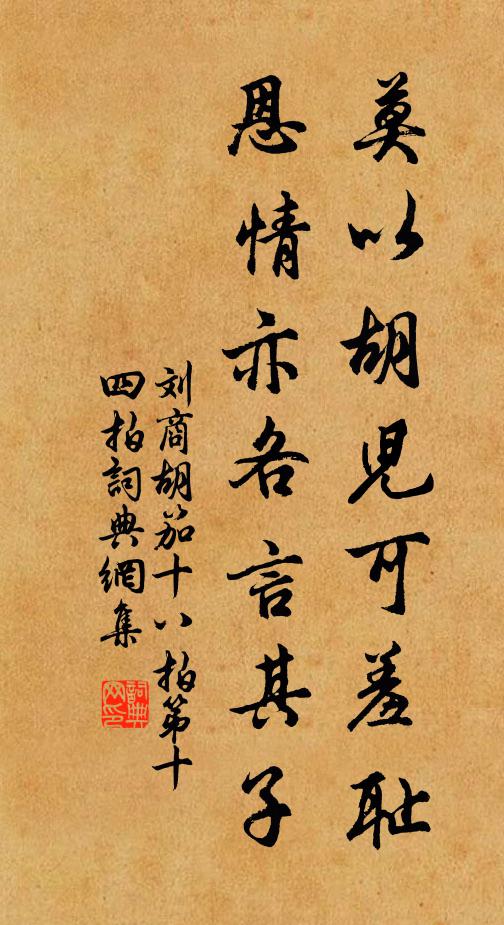 莫以胡児可羞耻
恩情亦各言其子
刘商胡笳十八拍第十
四拍詞典網集
詞典
网印